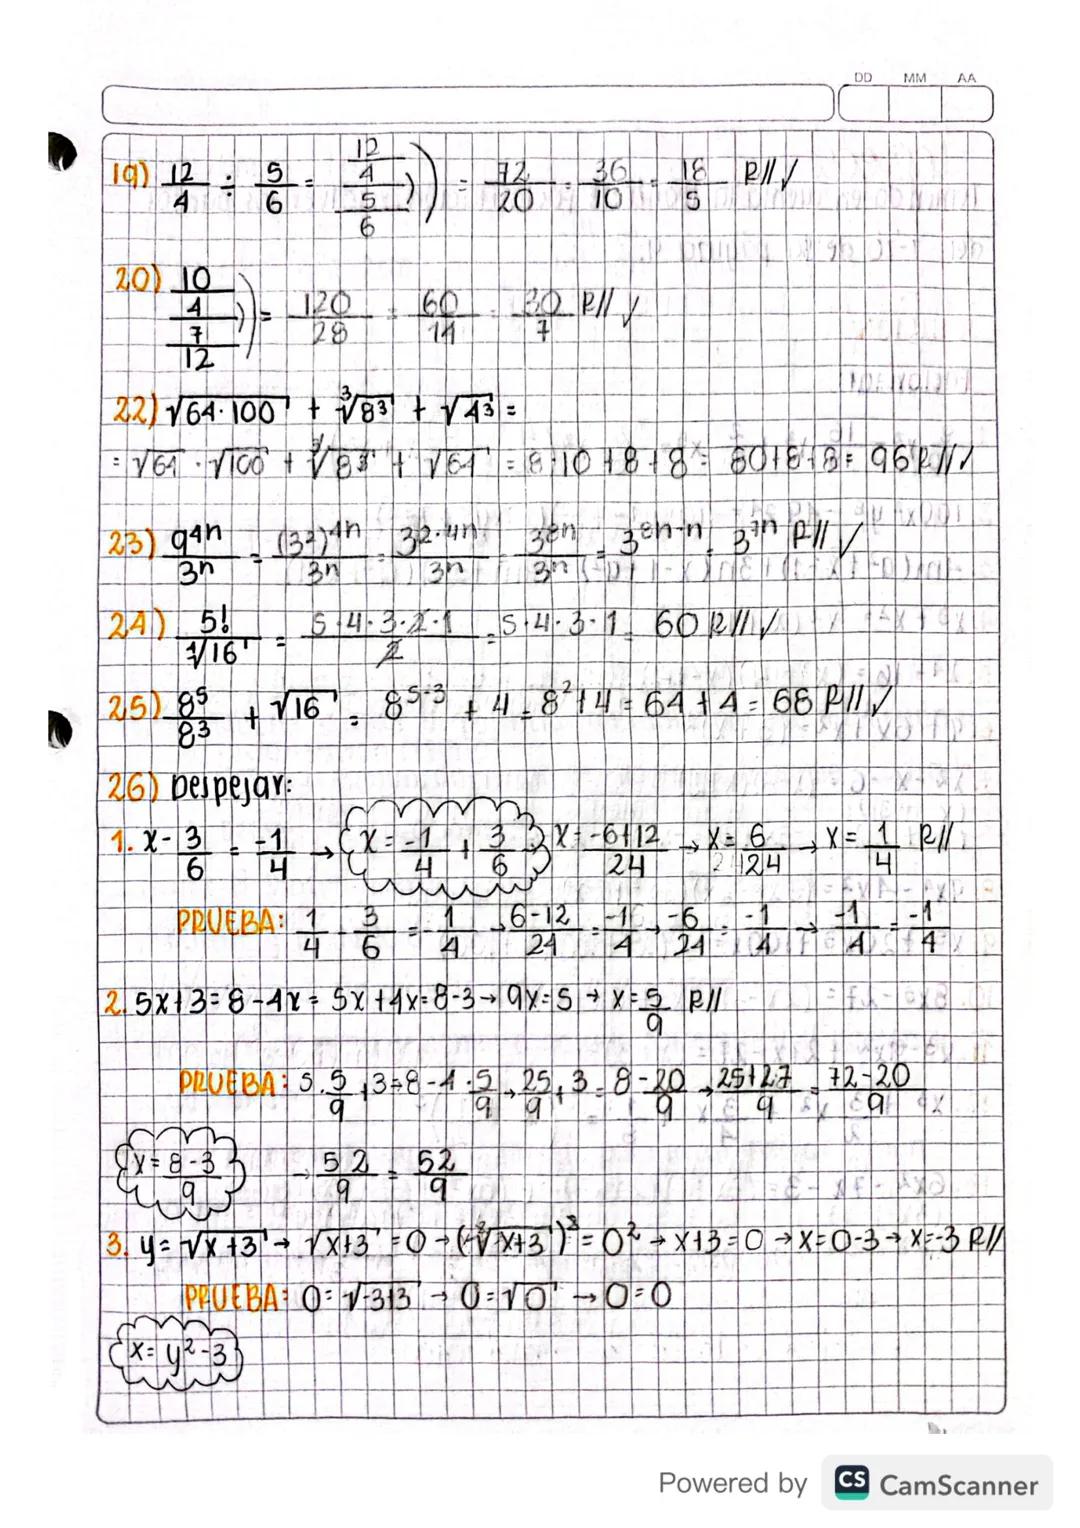 DD MM AA
19) 12/4 ÷ 5/6 = (12/4)/(5/6) = 72/20 = 36/10 = 18/5 R// ✓
20) (10/4)/(7/12) = 120/28 = 60/14 = 30/7 R// ✓
22) √64·100 + ³√8³ + √4³ =
= √64 · √100 + ³√8³ + √64 = 8·10 + 8 + 8 = 80+8+8 = 96 R// ✓
23) 9⁴ⁿ/3ⁿ = (3²)⁴ⁿ/3ⁿ = 3²·⁴ⁿ/3ⁿ = 3⁸ⁿ/3ⁿ = 3⁸ⁿ⁻ⁿ = 3⁷ⁿ R// ✓
24) 5!/⁴√16 = 5·4·3·2·1/2 = 5·4·3·1 = 60 R// ✓
25) 8⁵/8³ + √16 = 8⁵⁻³ + 4 = 8² + 4 = 64 + 4 = 68 R// ✓
26) Despejar:
1. x - 3/6 = -1/4 → x = -1/4 + 3/6 x = -6+12/24 → x = 6/24 → x = 1/4 R//
PRUEBA: 1/4 - 3/6 = -1/4 → 6-12/24 = -1/4 → -6/24 = -1/4 → -1/4 = -1/4
2. 5x+3 = 8-4x = 5x+4x = 8-3 → 9x = 5 → x = 5/9 R//
PRUEBA: 5·5/9 + 3 = 8 - 4·5/9 → 25/9 + 3 = 8 - 20/9 → 25+27/9 = 72-20/9
x = 8-3/9 → 52/9 = 52/9
3. y = √x+3 → √x+3 = 0 → (²√x+3)² = 0² → x+3 = 0 → x = 0-3 → x = -3 R//
PRUEBA: 0 = √-3+3 → 0 = √0 → 0 = 0
x = y²-3
Powered by CS CamScanner